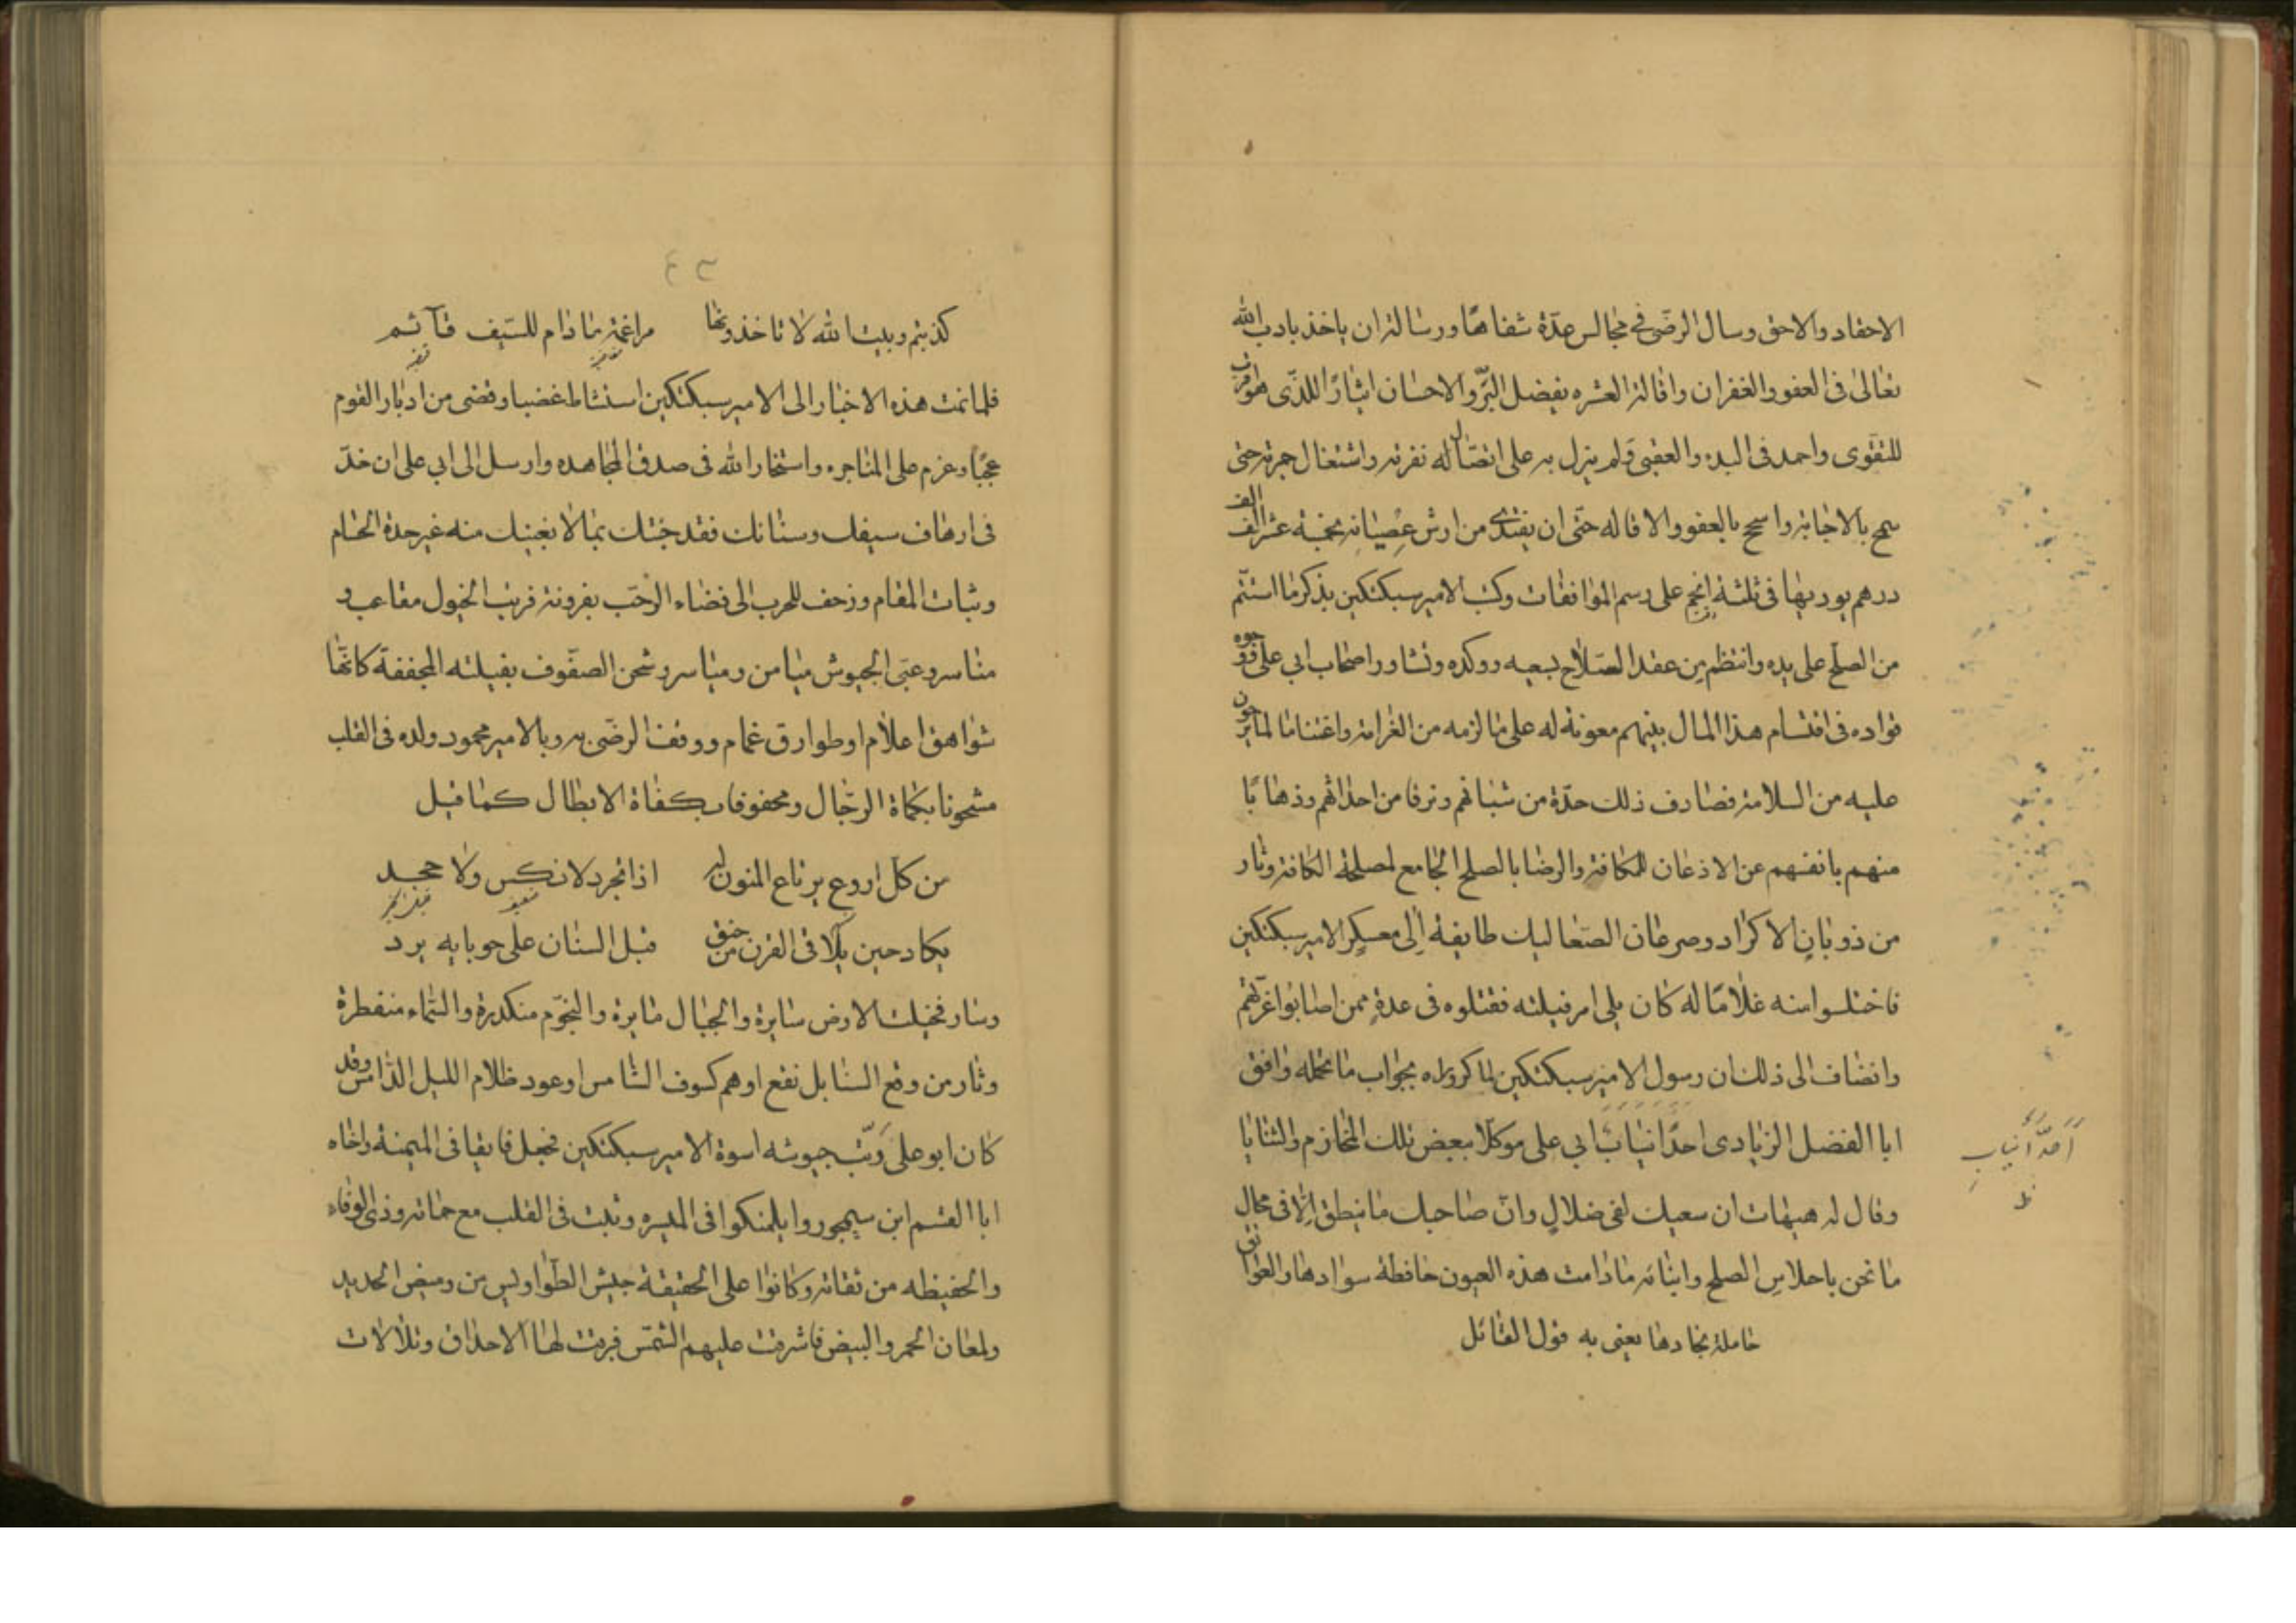 الاحقاد والاحق وسال الرضى فى مجالس عدة شفاها ورسالة ان ياخذ بادب الله
تعالى فى العفو والغفران واقالة العشره بفضل البر والاحسان ايثارا للذى هو اقرب
للتقوى واحمد فى البدء والعقبى ولم يزل به على اتصال له نفرته واشتغال جمرته حتى
سمح بالاجابة واسمح بالعفو والاقاله حتى ان يفتدى من ارش عصيانه بخمسة عشر الف الف
درهم يوديها فى ثلثة انجم على رسم المواقفات وكتب الامير سبكتكين بذكر ما استتم
من الصلح على يده وانتظم من عقد الصلاح بسعيه ووكده وتشاور اصحاب ابى على ووجوه
قواده فى اقتسام هذا المال بينهم معونة له على ما لزمه من الغرامة واغتناما لما يرجون
عليه من السلامة فصادف ذلك حدة من شبانهم ونزقا من احداثهم وذهابا
منهم بانفسهم عن الاذعان للمكافة والرضا بالصلح الجامع لمصلحة الكافة وثار
من ذوبان الاكراد وصرمان الصعاليك طايفة الى معسكر الامير سبكتكين
فاختلسوا منه غلاما له كان يلى امر فيلته فقتلوه فى عدة ممن اصابوا غرتهم
وانضاف الى ذلك ان رسول الامير سبكتكين لما كر وراه بجواب ما تحمله وافق
ابا الفضل الزيادى احد انياب ابى على موكلا ببعض تلك المخازم والثنايا
احد انياب
ظ
وقال له هيهات ان سعيك لفى ضلال وان صاحبك ما ينطق الا فى محال
ما نحن باحلاس الصلح وابنائه ما دامت هذه العيون حافظة سوادها والعواتق
حاملة نجادها يعنى به قول القائل
٤٣
كذبتم وبيت الله لا تاخذونها مراغمة ما دام للسيف قآئم
فلما نمت هذه الاخبار الى الامير سبكتكين استشاط غضبا وقضى من ادبار القوم
عجبا وعزم على المناجره واستخار الله فى صدق المجاهده وارسل الى ابى على ان خذ
فى ارهاف سيفك وسنانك فقد جئتك بما لا يغنيك منه غير حدة الحسام
وثبات المقام وزحف للحرب الى فضاء الرحب بفرونة فرتب الخيول مقاعب و
مناسر وعبى الجيوش ميامن ومياسر وشحن الصفوف بفيلته المجففة كانها
شواهق اعلام او طوارق غمام ووقف الرضى به وبالامير محمود ولده فى القلب
مشحونا بكماة الرجال ومحفوفا بكفاة الابطال كما قيل
من كل اروع يرتاع المنون له اذا تجرد لا نكس ولا جحد
يكاد حين يلاقى القرن من حنق قبل السنان على حوبايه يرد
وسار فخيلت الارض سايرة والجبال مايرة والنجوم منكدرة والسماء منفطرة
وثار من وقع السنابل نقع اوهم كسوف الشامس او عود ظلام الليل الدامس وقد
كان ابو على رتب جيوشه اسوة الامير سبكتكين فجعل فايقا فى الميمنة واخاه
ابا القسم ابن سيمجور وايلمنكوا فى الميسره وثبت فى القلب مع حماته وذى الوفاء
والحفيظه من ثقاته وكانوا على الحقيقة جيش الطواويس من وميض الحديد
ولمعان الحمر والبيض فاشرقت عليهم الشمس فبرقت لها الاحداق وتلألات